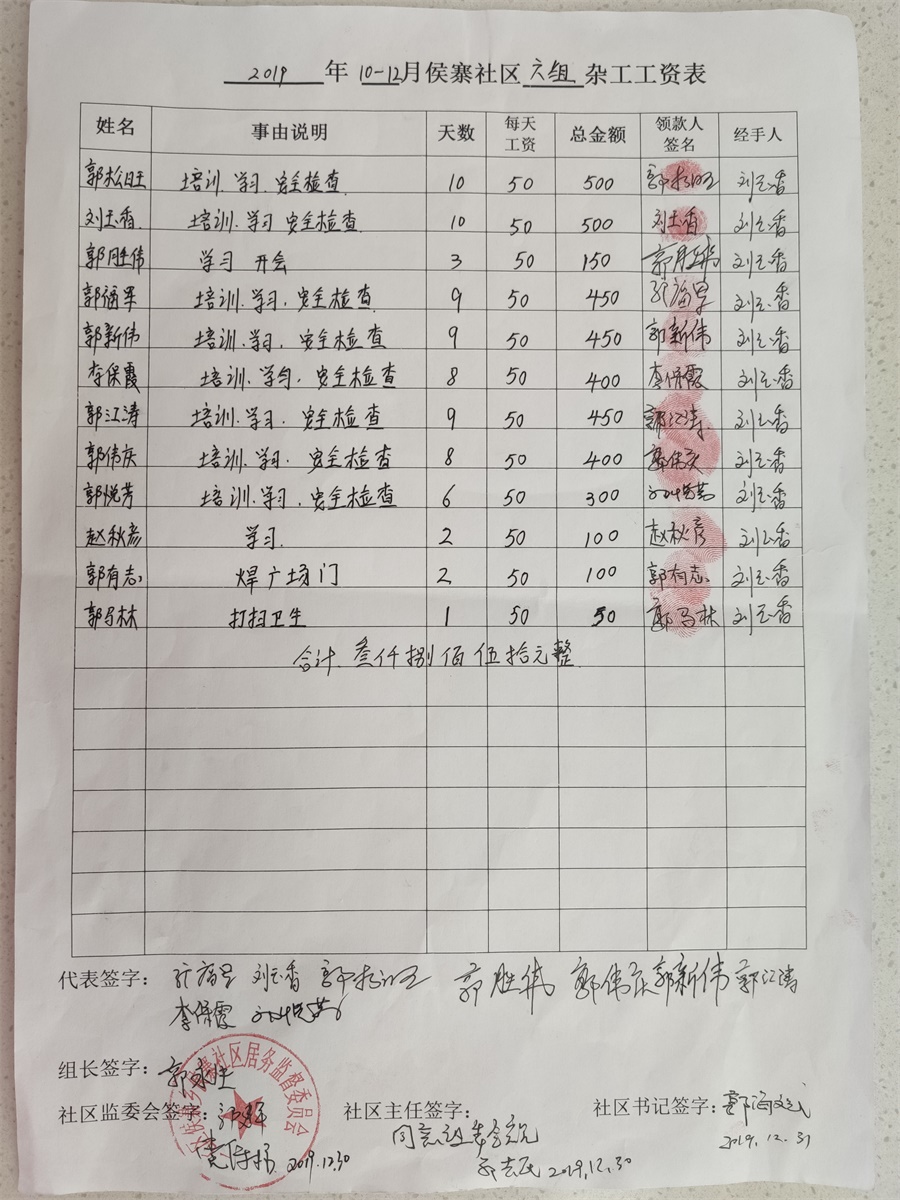 2019 年 10-12月侯寨社区 六组 杂工工资表
姓名 事由说明 天数 每天工资 总金额 领款人签名 经手人
郭松旺 培训.学习.安全检查 10 50 500 郭松旺 刘玉香
刘玉香 培训.学习 安全检查 10 50 500 刘玉香 刘玉香
郭胜伟 学习 开会 3 50 150 郭胜伟 刘玉香
郭福军 培训.学习.安全检查 9 50 450 刘玉香
郭新伟 培训.学习.安全检查 9 50 450 郭新伟 刘玉香
李保霞 培训.学习.安全检查 8 50 400 李保霞 刘玉香
郭江涛 培训.学习.安全检查 9 50 450 郭江涛 刘玉香
郭伟庆 培训.学习.安全检查 8 50 400 郭伟庆 刘玉香
郭悦芳 培训.学习.安全检查 6 50 300 刘玉香
赵秋彦 学习. 2 50 100 赵秋彦 刘玉香
郭有志 焊广场门 2 50 100 郭有志 刘玉香
郭马林 打扫卫生 1 50 50 郭马林 刘玉香
合计.叁仟捌佰伍拾元整
代表签字： 刘玉香 郭松旺 郭胜伟 郭伟庆 郭新伟 郭江涛
李保霞
组长签字：
寨社区居务监督委员会
社区监委会签字： 社区主任签字： 社区书记签字：
2019.12.30 2019.12.30 2019.12.31